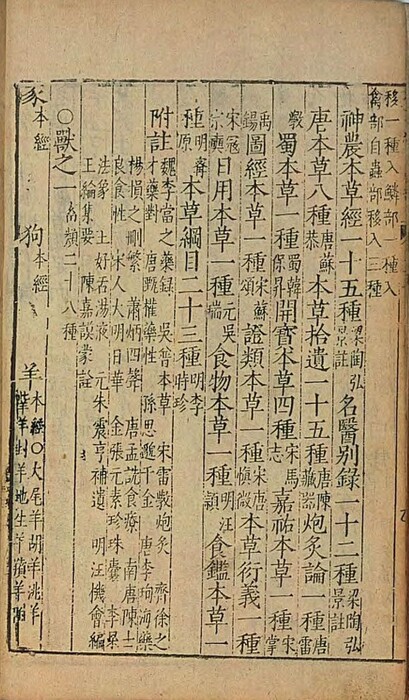 移一種入鱗部一種入
禽部自蟲部移入三種
神農本草經一十五種梁陶弘景註 名醫別錄一十二種梁陶弘景註
唐本草八種唐蘇恭 本草拾遺一十五種唐陳藏器 炮炙論一種唐雷
斆 蜀本草一種蜀韓保昇 開寶本草四種宋馬志 嘉祐本草一種宋掌
禹錫 圖經本草一種宋蘇頌 證類本草一種宋唐慎微 本草衍義一種
宋寇宗奭 日用本草一種元吳瑞 食物本草一種明汪穎 食鑑本草一
種明甯原 本草綱目二十三種明李時珍
附註 魏李當之藥錄 吳普本草 宋雷斆炮炙 齊徐之
才藥對 唐甄權藥性 孫思邈千金 唐李珣海藥
楊損之刪繁 蕭炳四聲 唐孟詵食療 南唐陳士
良食性 宋人大明日華 金張元素珍珠囊 李杲
法象 王好古湯液 元朱震亨補遺 明汪機會編
王綸集要 陳嘉謨蒙詮
○獸之一 畜類二十八種
豕本經 狗本經 羊本經○大尾羊胡羊洮羊
封羊地生羊羵羊附